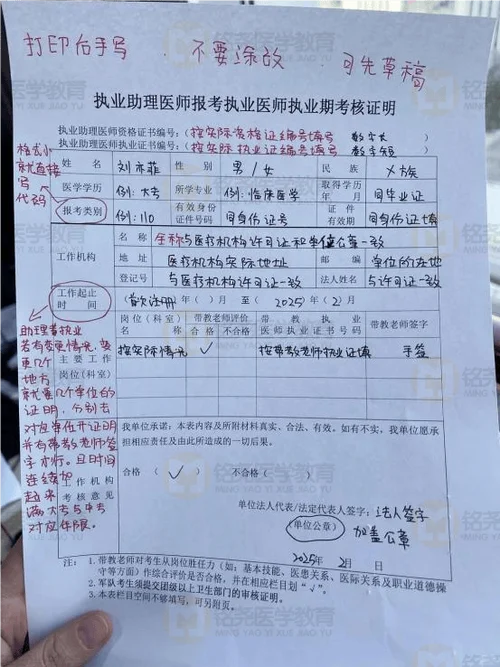 打印后手写 不要涂改 可先草稿
执业助理医师报考执业医师执业期考核证明
执业助理医师资格证书编号:(按实际资格证编号填写 数字长)
执业助理医师执业证书编号:(按实际执业证编号填写 数字短)
姓名 刘亦菲 性别 男/女 民族 X族
医学学历 例:大专 所学专业 例:临床医学 取得学历年月 同毕业证
报考类别 例:110 有效身份证件号码 同身份证号 证件有效期 同身份证填
就直接写代码
工作机构
名称 全称与医疗机构许可证和单位公章一致
地址 医疗机构实际地址 邮编 单位的本地
登记号 与医疗机构许可证一致 法人姓名 与许可证一致
工作起止时间 (首次注册)年( )月 至 (2025)年(2)月
主要工作岗位(科室)
岗位(科室)名称 带教老师评价 合格 不合格 带教执业医师执业证书编号 带教老师签字
按实际情况 ✓ 按带教老师执业证填 手签
助理者执业
若有变更情况,
更几个
地方
就要几个单位的
证明,分别去
对应单位开证明
并有带教老师签
字亦行。且时间
连续
起来
满大专与中专
对应年限。
工作机构考核意见
我单位承诺:本表内容及所附材料真实、合法、有效。如有不实,我单位愿承
担相应责任及由此所造成的一切后果。
合格(✓) 不合格( )
单位法人代表/法定代表人签字:法人签字
(单位公章) 加盖公章
2025年 2月 日
注:1. 带教老师对考生从岗位胜任力(如:基本技能、医患关系、医际关系及职业道德操
守等方面)作综合评价是否合格,并在相应栏目划“√”。
2. 军队考生须提交团级以上卫生部门的审核证明。
3. 本表栏目空间不够填写,可另附页。
铭尧医学教育
MING YAO YI XUE JIAO YU